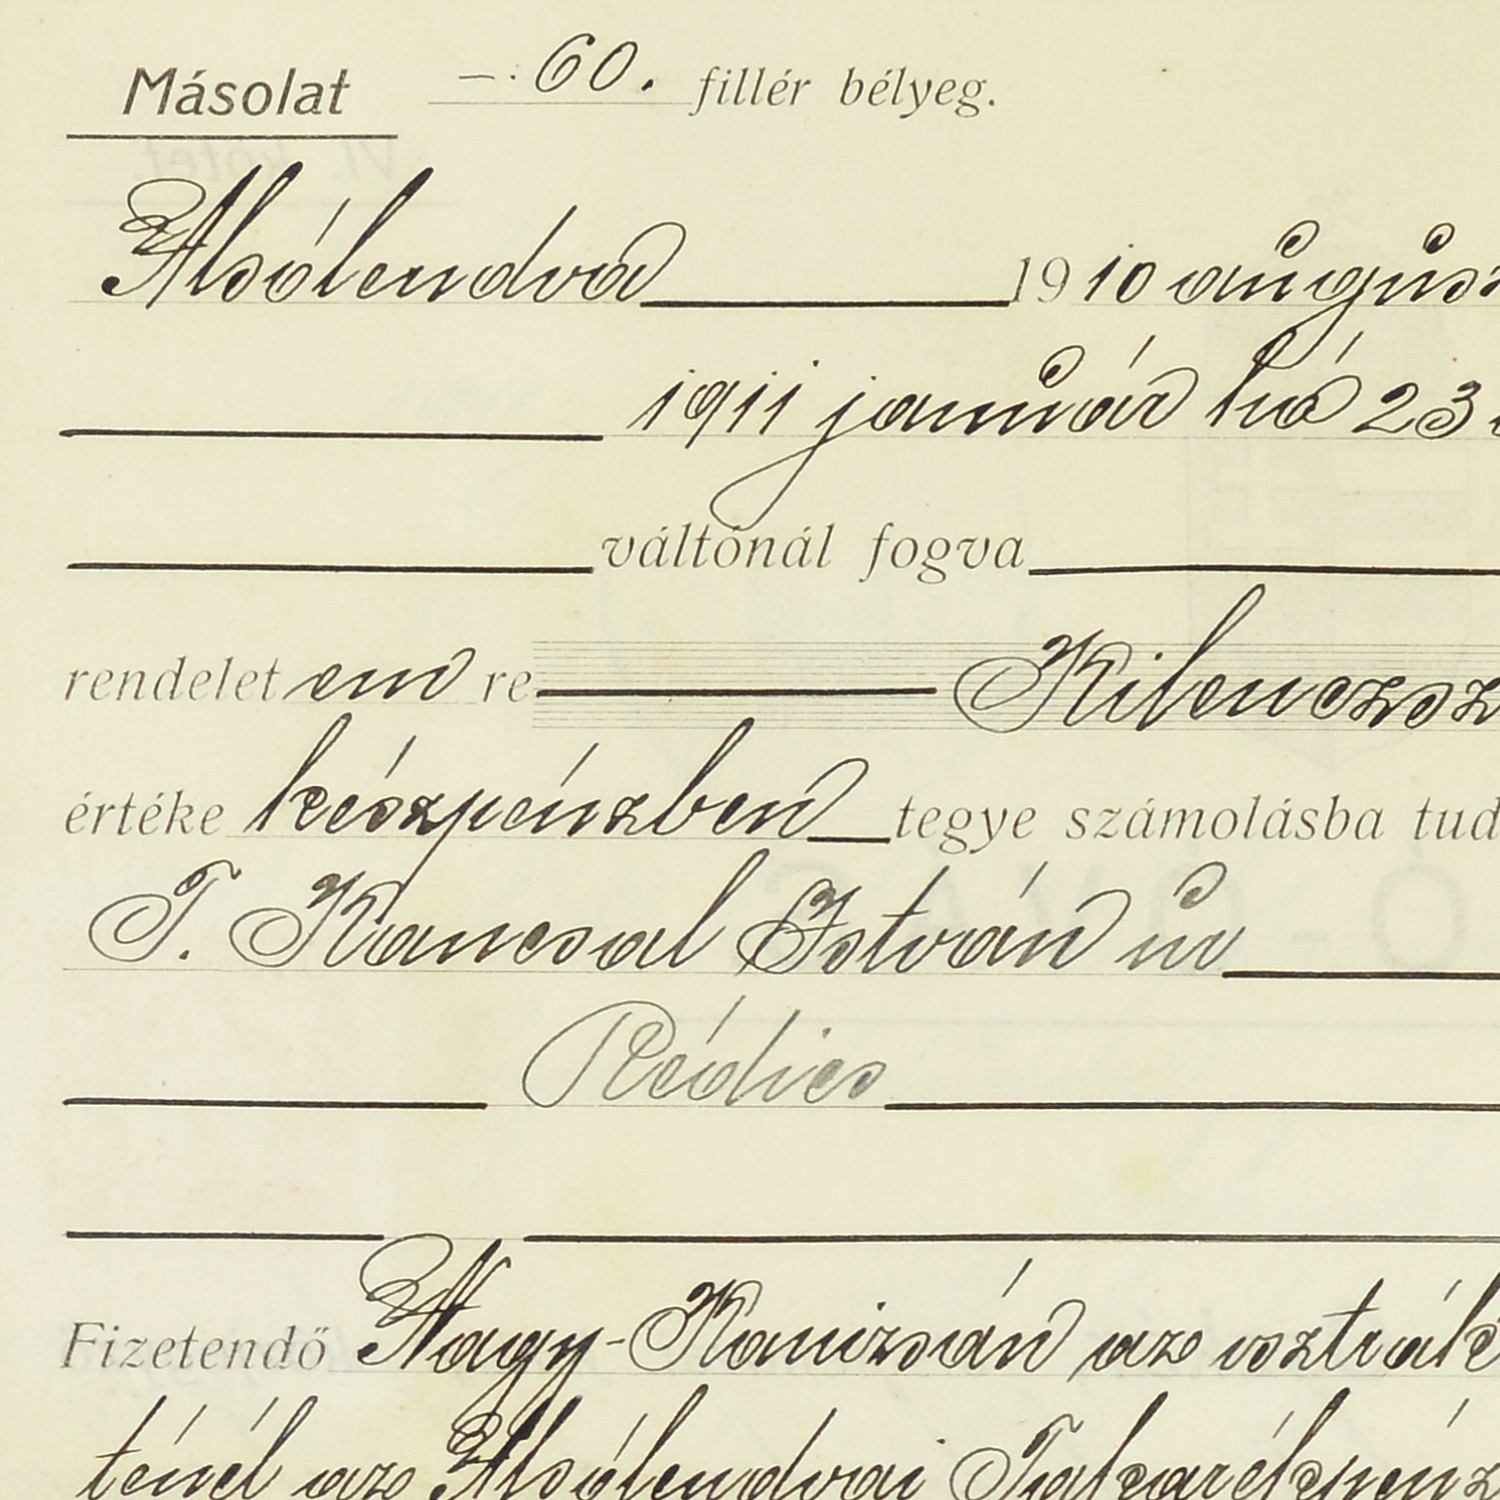 Másolat —:60. fillér bélyeg.
Alsólendva 1910 august
1911 január hó 23
váltónál fogva
rendelet em re Kilenczsz
értéke készpénzben tegye számolásba tud
T. Kancsal István úr
Rédics
Fizetendő Nagy-Kanizsán az osztrák
ténél az Alsólendvai Takarékpénz